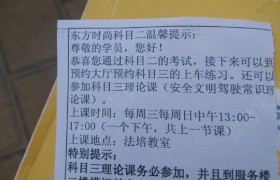 东方时尚科目二温馨提示:
尊敬的学员，您好！
恭喜您通过科目二的考试，接下来可以到
预约大厅预约科目三的上车练习。还可以
参加科目三理论课（安全文明驾驶常识理
论课）。
上课时间：每周三每周日中午13:00-
17:00（一个下午，共上一节课）
上课地点：法培教室
特别提示：
科目三理论课务必参加，并且到服务楼